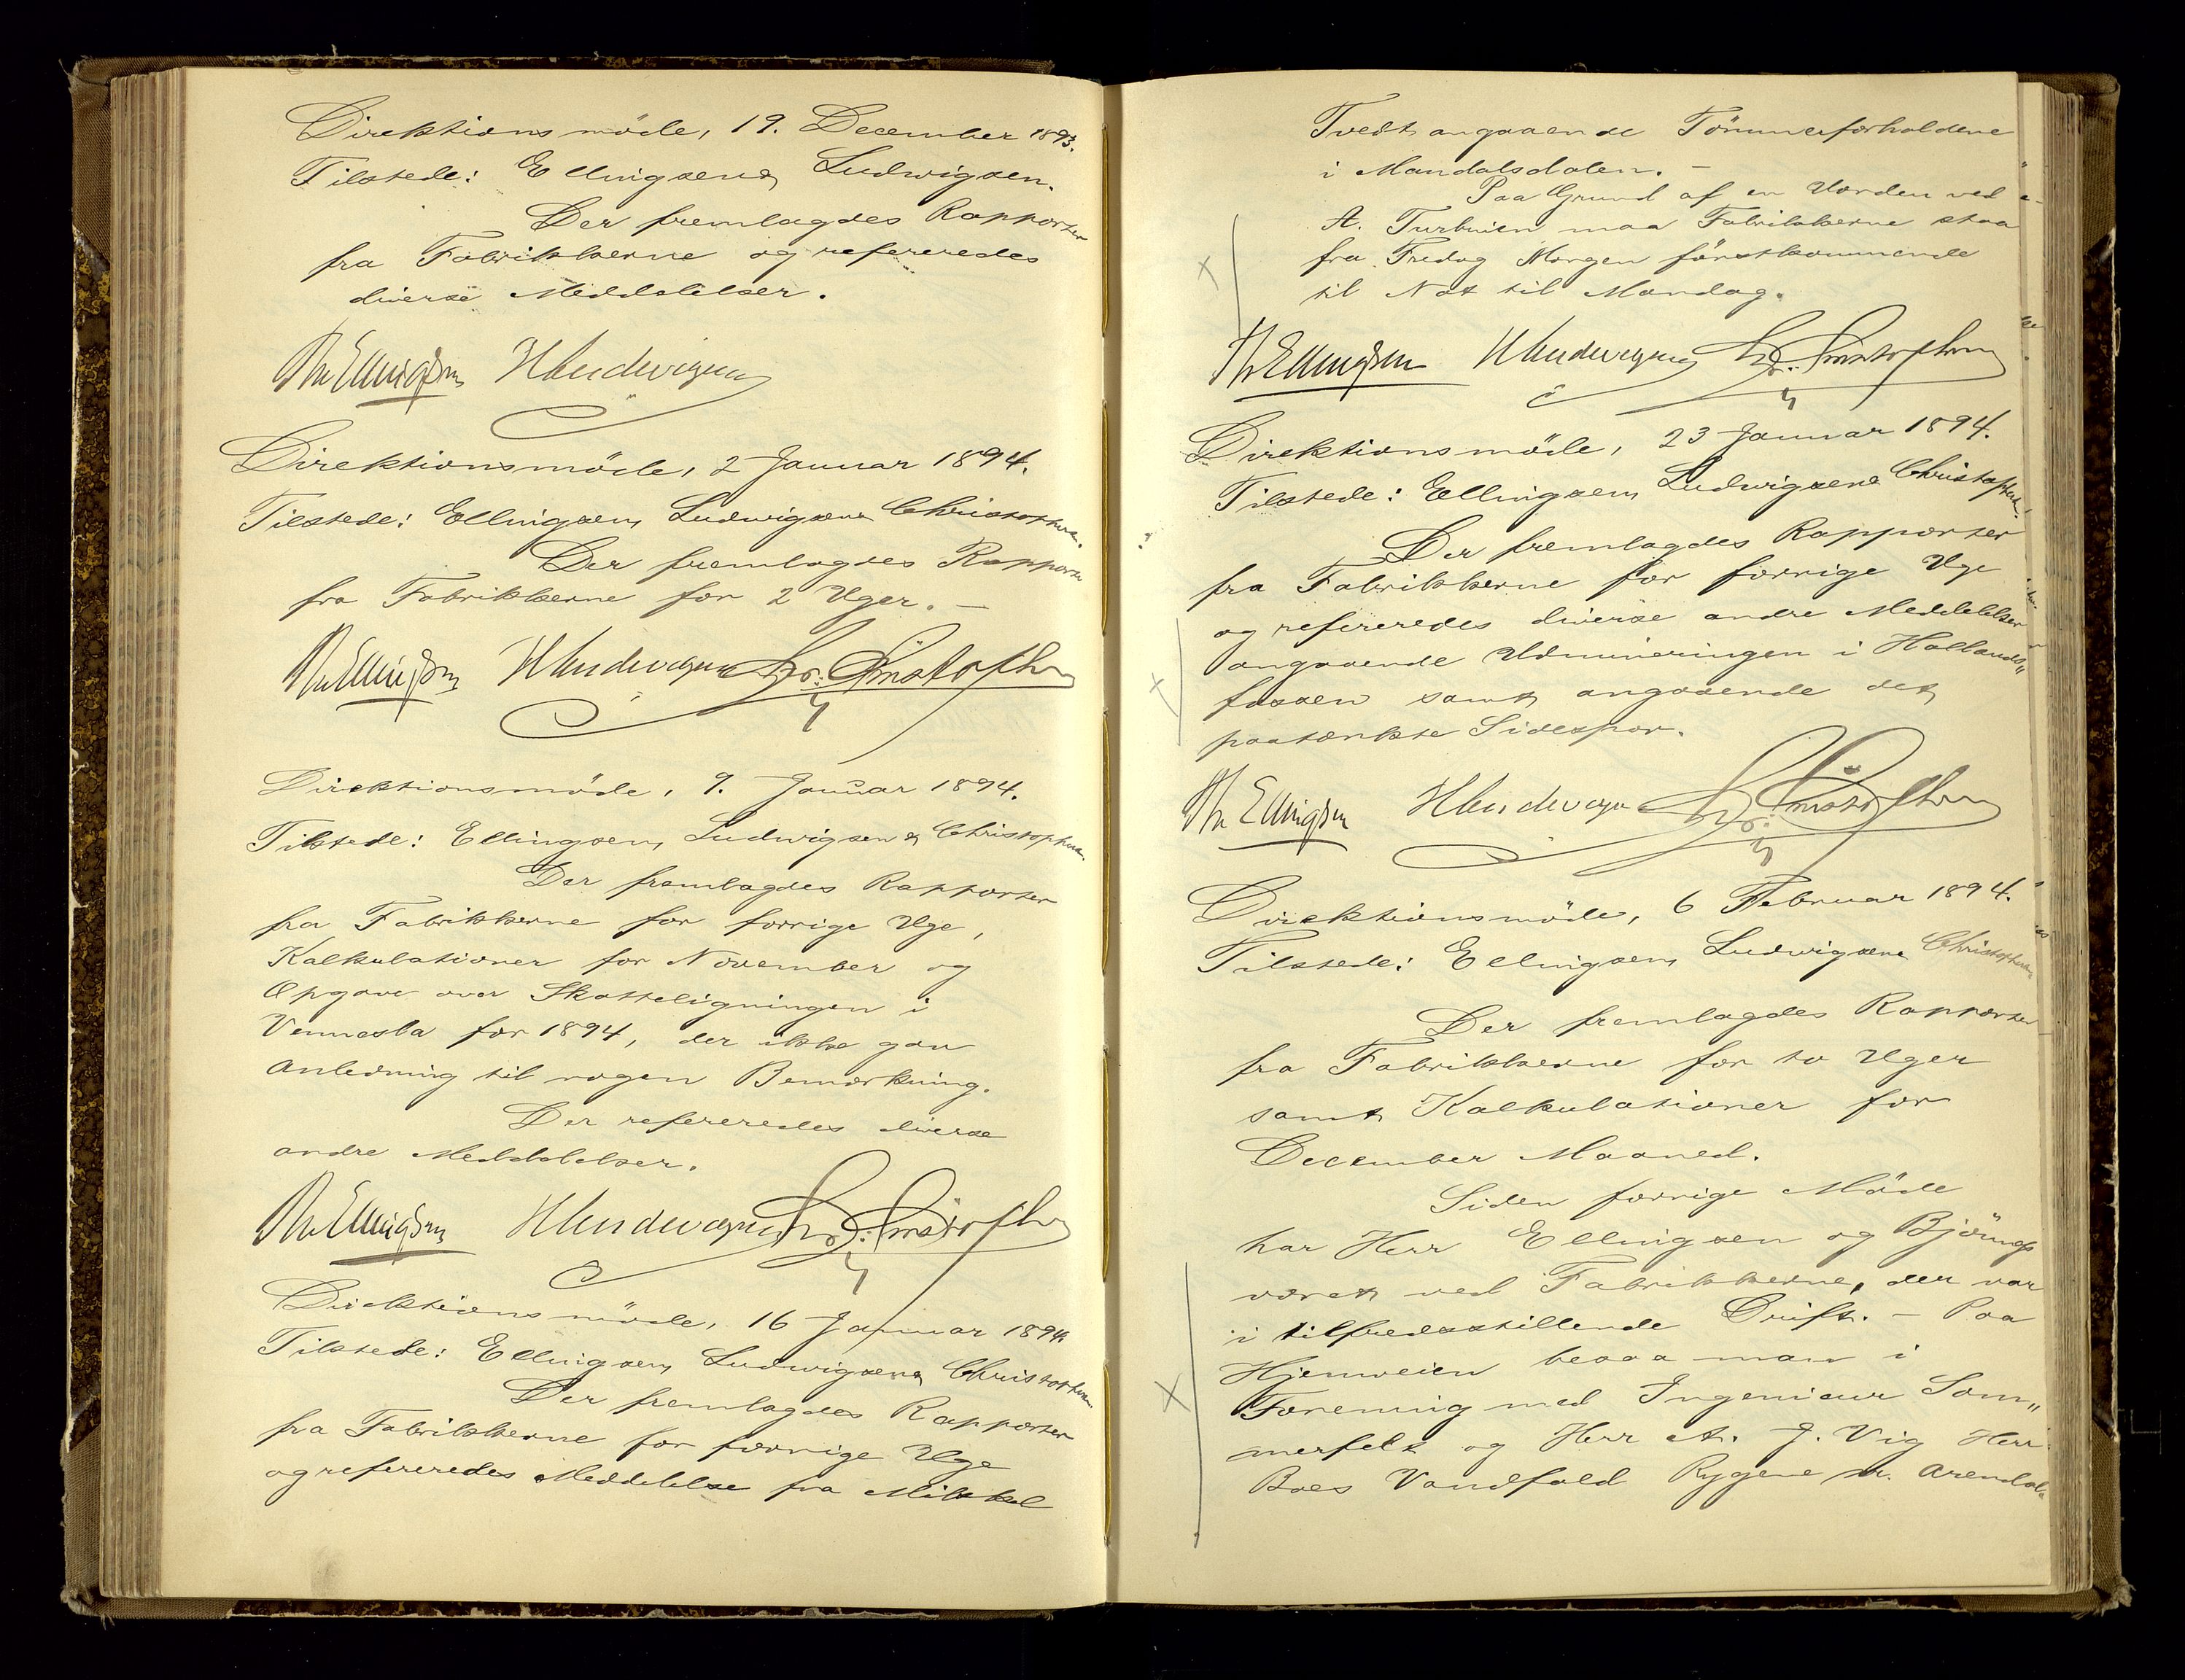 Direktionsmöde, 19. December 1893.
Tilstede: Ellingsen & Ludwigsen.
Der fremlagdes Rapporter
fra Fabrikkerne og refereredes
diverse Meddelelser.
Th Ellingsen HLudwigsen
Direktionsmöde, 2 Januar 1894.
Tilstede: Ellingsen, Ludwigsen & Christophersen.
Der fremlagdes Rapporter
fra Fabrikkerne for 2 Uger. —
Th Ellingsen HLudwigsen Chr. Christophersen
Direktionsmöde, 9. Januar 1894.
Tilstede: Ellingsen, Ludwigsen & Christophersen.
Der fremlagdes Rapporter
fra Fabrikkerne for forrige Uge,
Kalkulationer for November og
Opgave over Skatteligningen i
Vennesla for 1894, der ikke gav
Anledning til nogen Bemærkning.
Der refereredes diverse
andre Meddelelser.
Th Ellingsen HLudwigsen Chr. Christophersen
Direktionsmöde, 16 Januar 1894
Tilstede: Ellingsen, Ludwigsen & Christophersen.
Der fremlagdes Rapporter
fra Fabrikkerne for forrige Uge
og refereredes Meddelelse fra Mikkel
Tvedt angaaende Tömmerforholdene
i Mandalsdalen. —
Paa Grund af en Uorden ved
A. Turbinen maa Fabrikkerne staa
fra Fredag Morgen förstkommende
til Nat til Mandag.
Th Ellingsen HLudwigsen Chr. Christophersen
Direktionsmöde, 23 Januar 1894.
Tilstede: Ellingsen, Ludwigsen & Christophersen.
Der fremlagdes Rapporter
fra Fabrikkerne for forrige Uge
og refereredes diverse andre Meddelelser
angaaende Udmineringen i Hallands„
fossen samt angaaende det
paatænkte Sidespor.
Th Ellingsen HLudwigsen Chr. Christophersen
Direktionsmöde, 6 Februar 1894.
Tilstede: Ellingsen, Ludwigsen & Christophersen
Der fremlagdes Rapporter
fra Fabrikkerne for to Uger
samt Kalkulationer for
December Maaned.
Siden forrige Möde
har Herr Ellingsen og Björum
været ved Fabrikkerne, der var
i tilfredsstillende Drift. — Paa
Hjemveien besaa man i
Forening med Ingenieur Som„
merfelt og Herr A. J. Vig Herr
Boes Vandfald Rygene nr. Arendal.